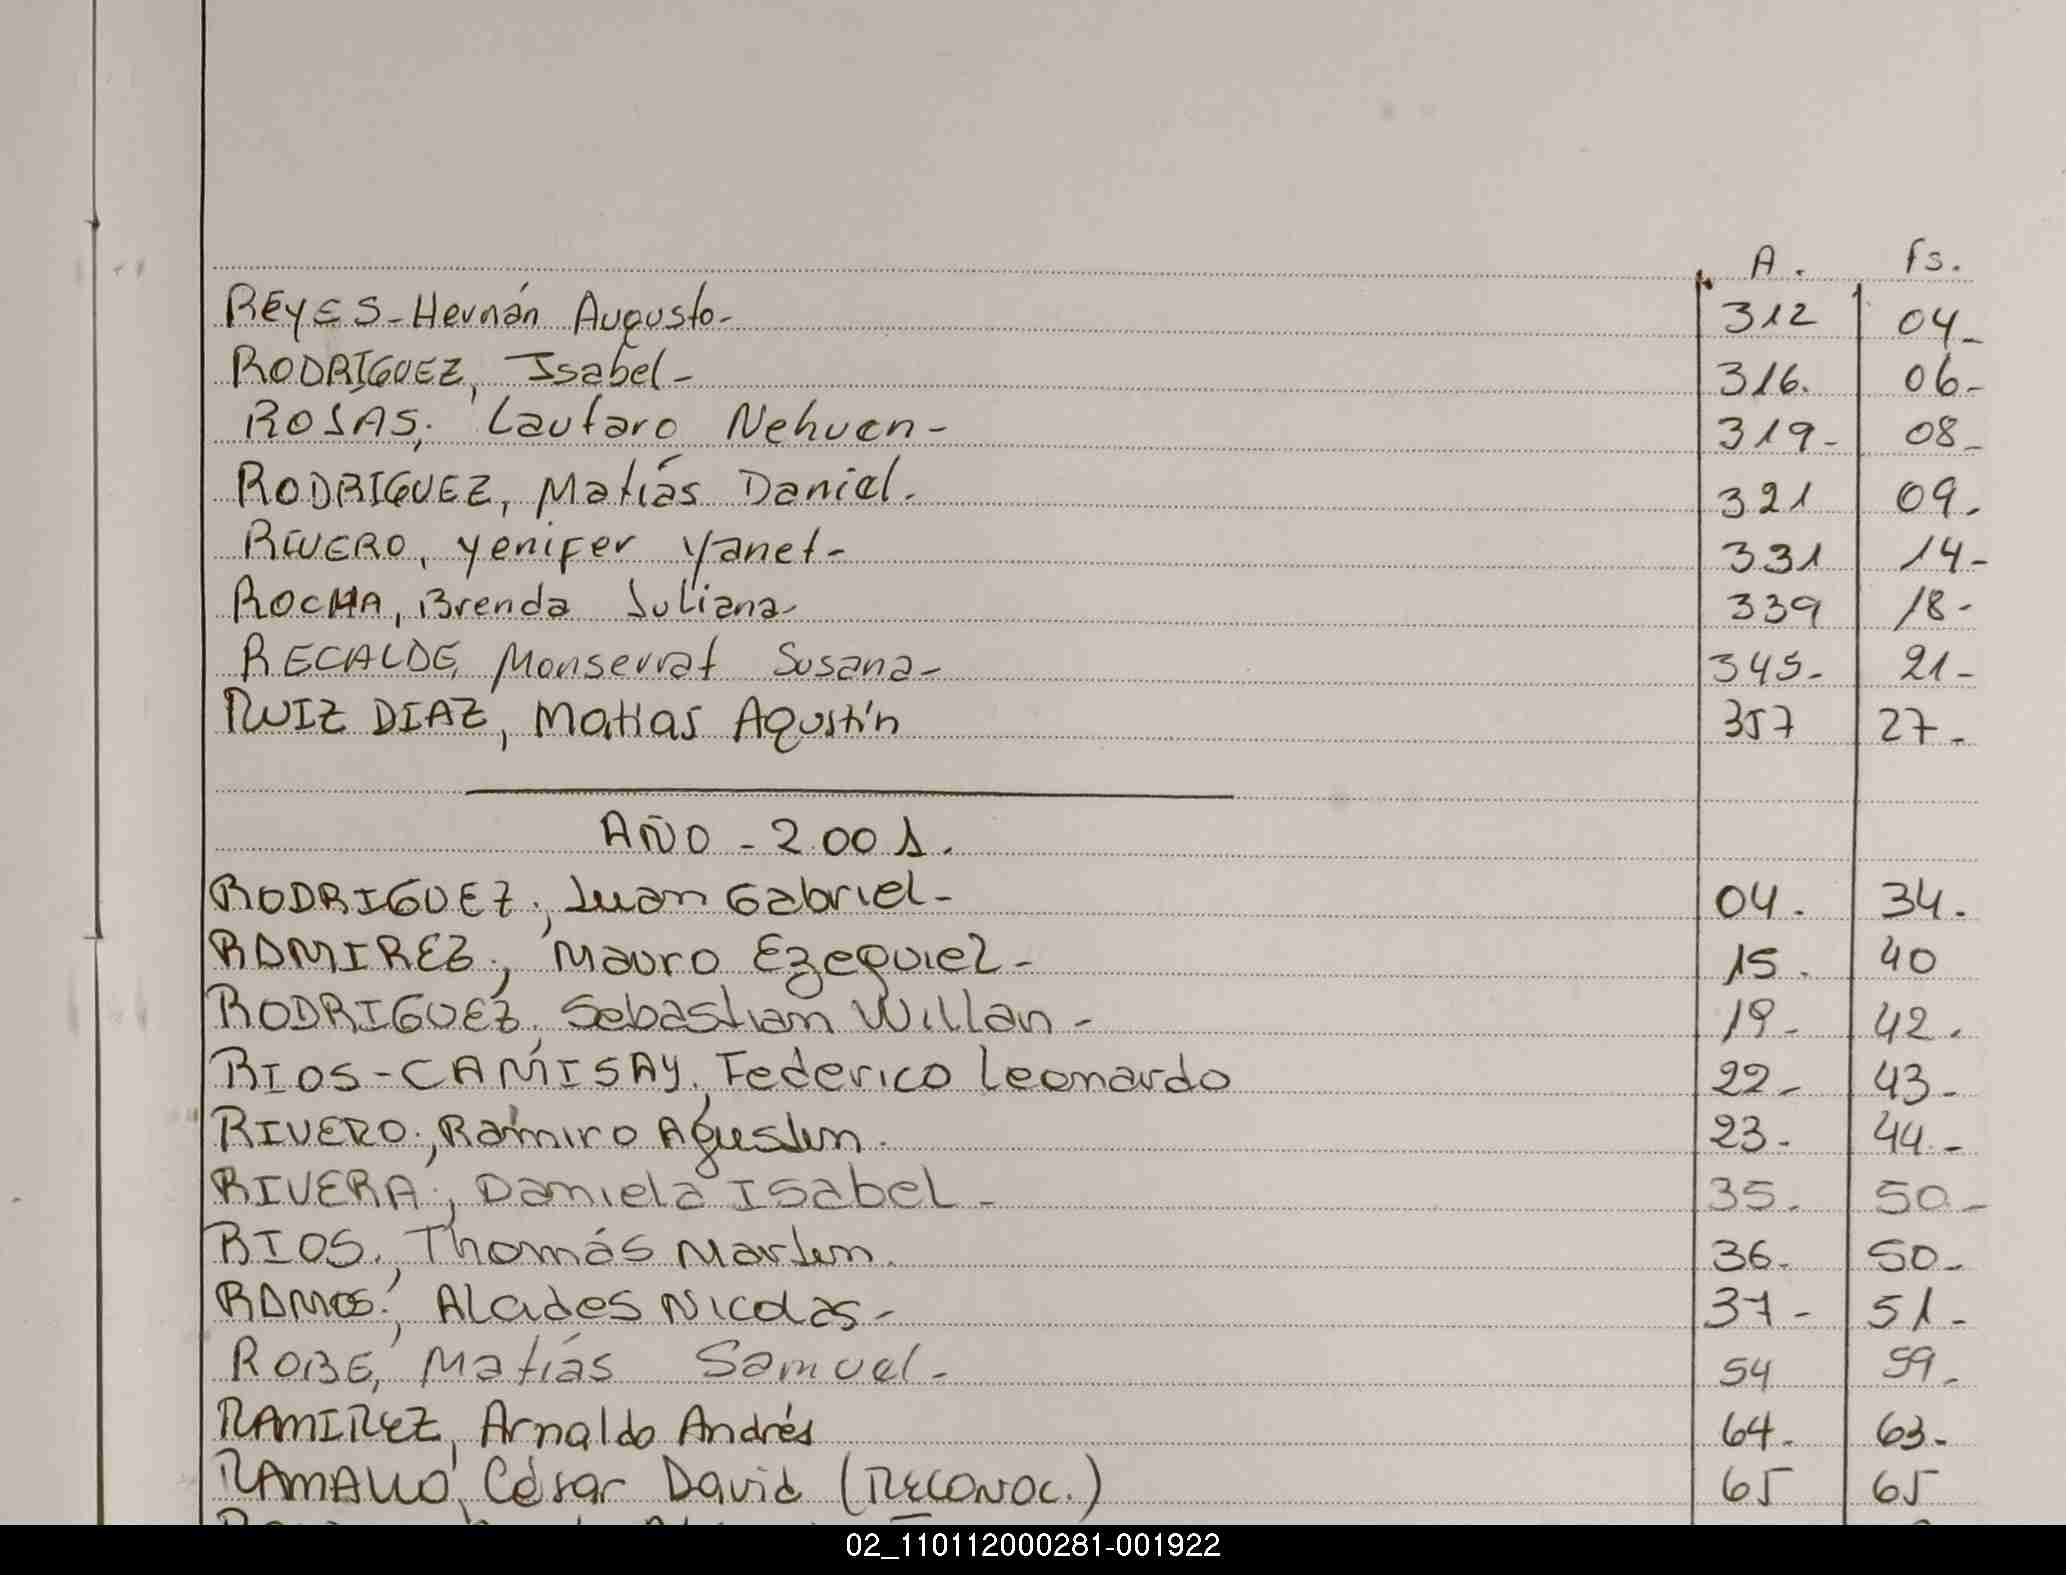 A. Fs.
REYES - Hernán Augusto - 312 04 -
RODRÍGUEZ, Isabel - 316. 06 -
ROSAS, Lautaro Nehuen - 319 - 08 -
RODRIGUEZ, Matías Daniel. 321 09.
RIVERO, Yenifer Yanet - 331 14 -
ROCHA, Brenda Juliana - 339 18 -
RECALDE, Monserrat Susana - 345 - 21 -
RUIZ DIAZ, Matias Agustín 357 27 -
AÑO - 2001.
RODRIGUEZ, Juan Gabriel - 04. 34.
RAMIREZ, Mauro Ezequiel - 15. 40
RODRIGUEZ, Sebastian Willan - 19 - 42.
RIOS - CAMISAY, Federico Leonardo 22 - 43 -
RIVERO, Ramiro Agustin. 23 - 44 -
RIVERA, Daniela Isabel - 35. 50 -
RIOS, Thomás Martin. 36. 50 -
RAMOS, Alades Nicolas - 37 - 51 -
ROBE, Matías Samuel - 54 59.
RAMIREZ, Arnaldo Andrés 64. 63.
RAMALLO, César David (RECONOC.) 65 65
02_110112000281-001922